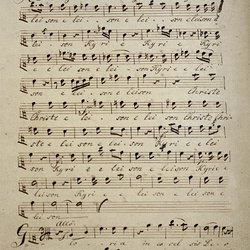 lei _ son e lei _ son eleison e
lei _ son Kyri e Kyri e
e e lei son e lei son e lei
son e lei son eleison Christe
Christe e lei _ son e lei son Christe Chri
ste e lei son e lei son e lei
son Kyri e e lei son e lei son Kyrie e
lei son Kyri _ e lei son e lei son e
lei son
Alle.
Glo _ ria in ex cel sis De _